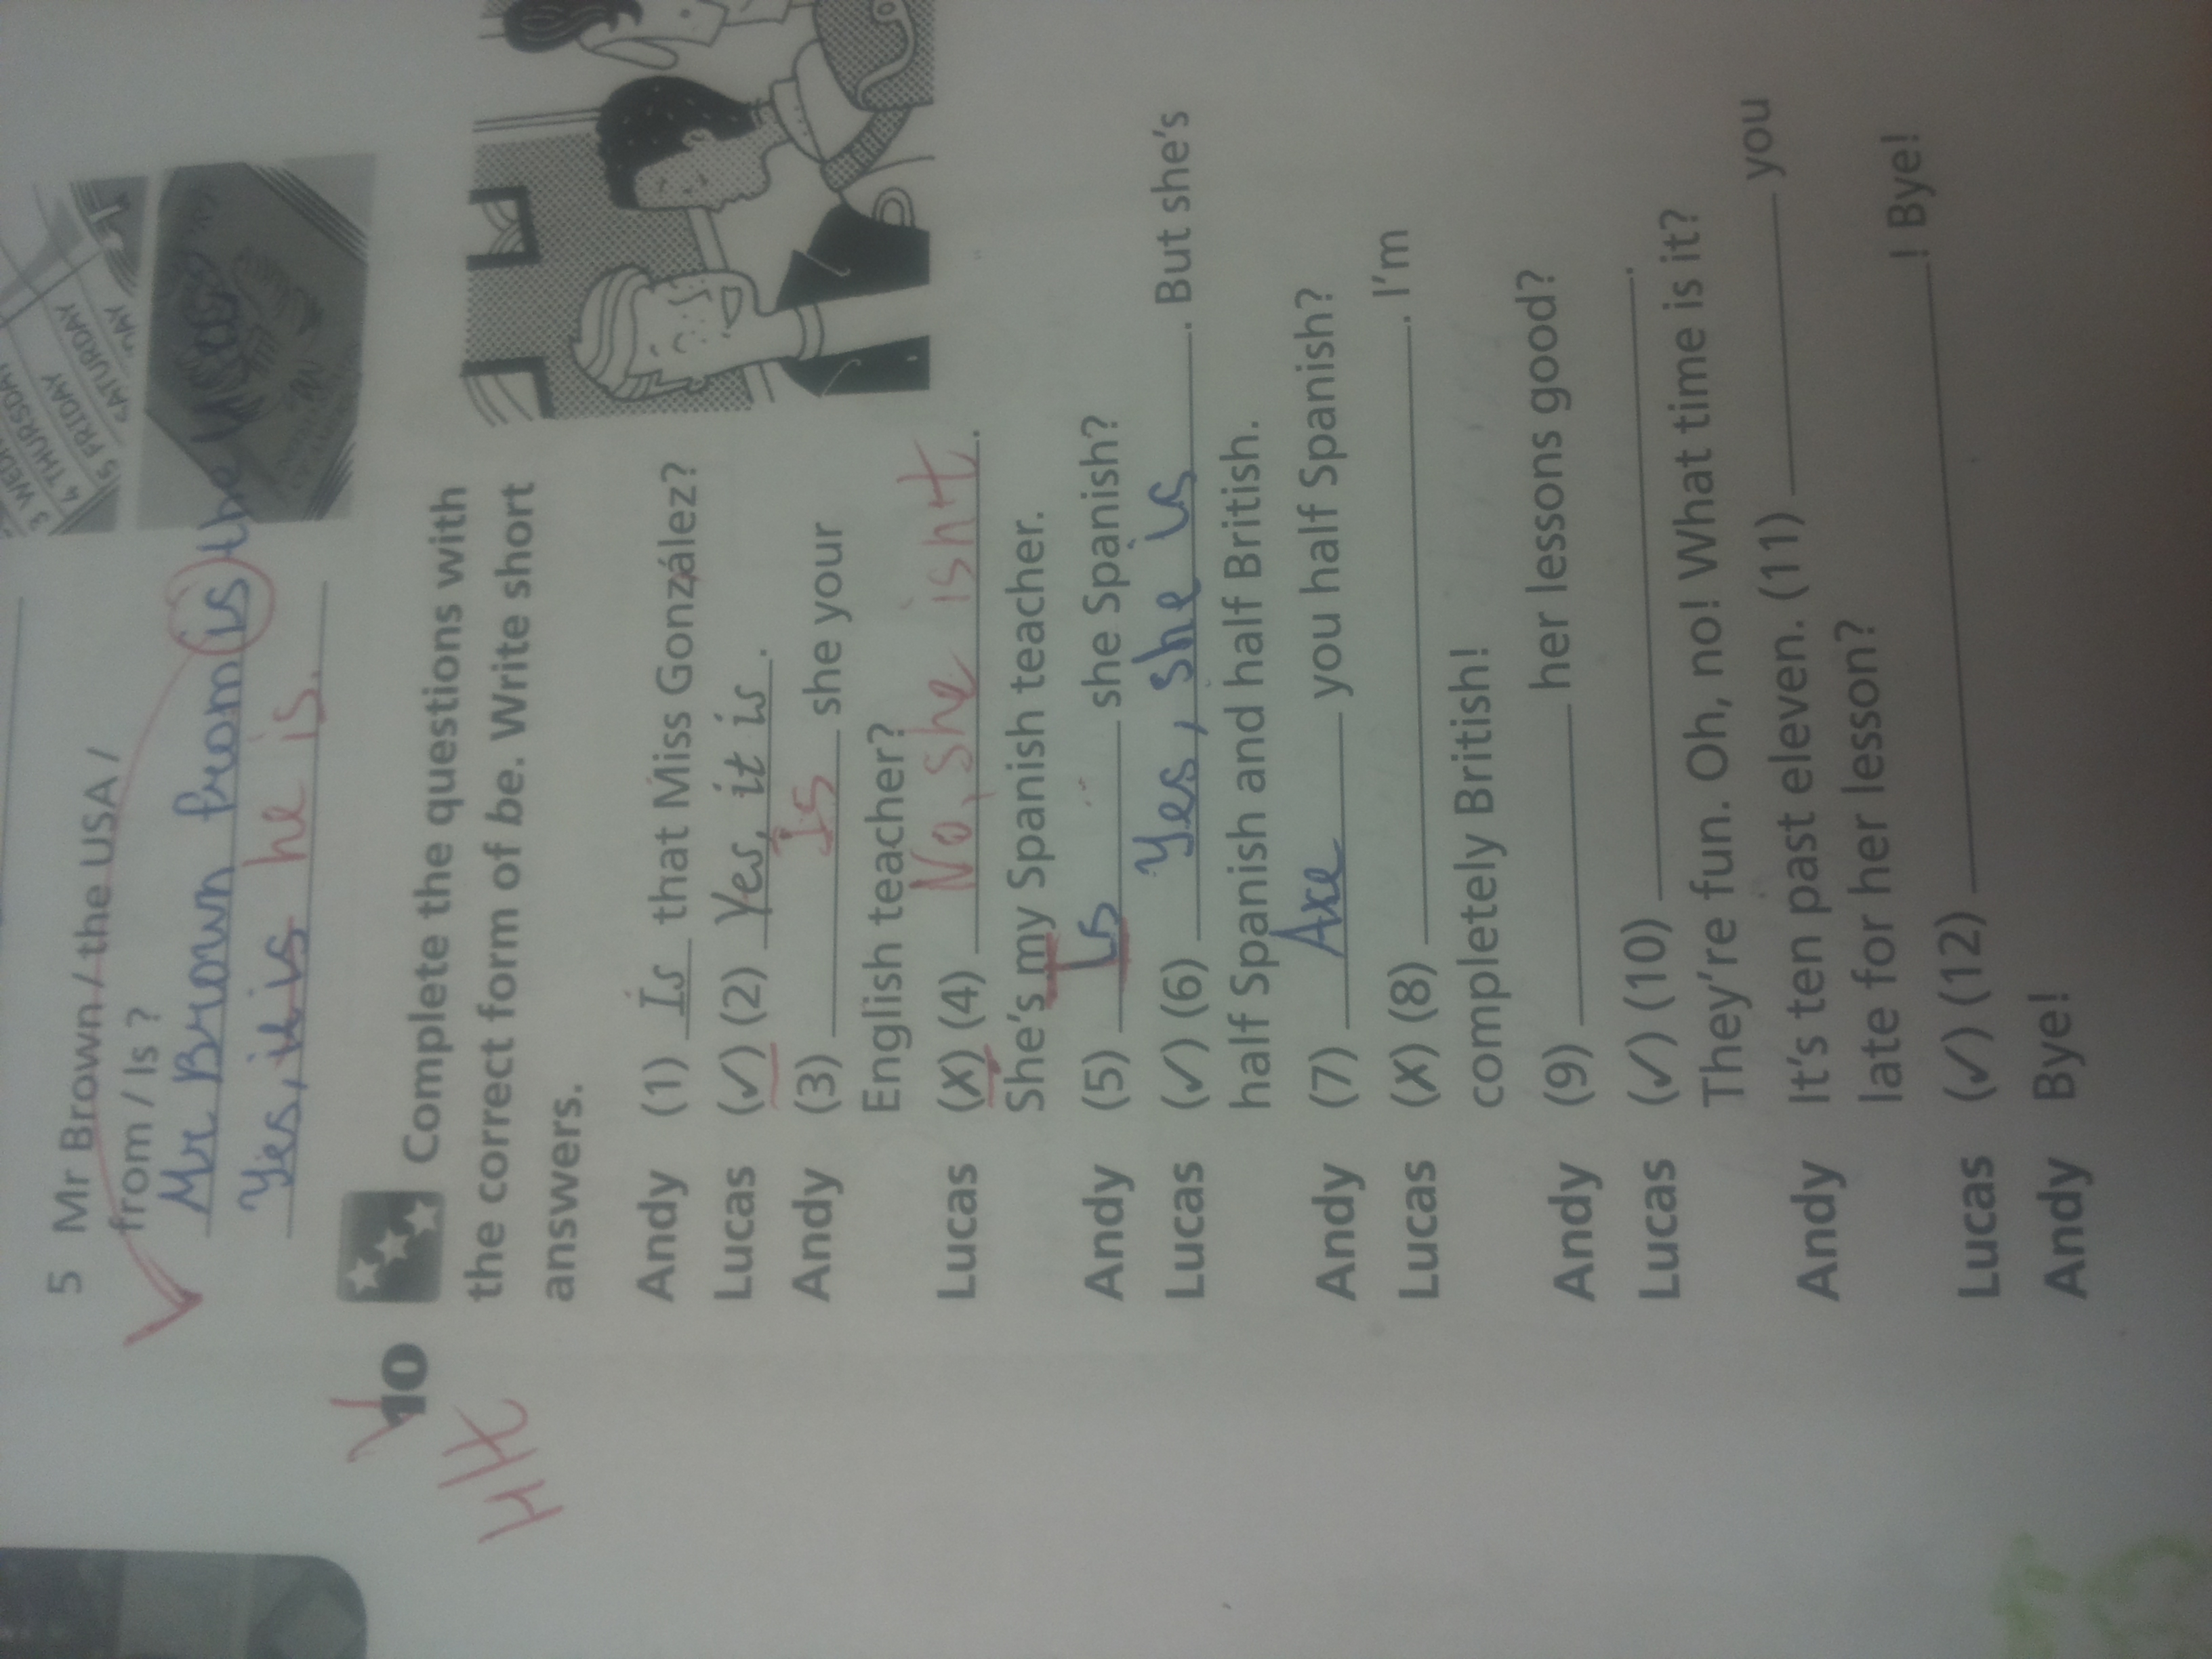 4 THURSDAY
5 FRIDAY
SATURDAY
5 Mr Brown / the USA /
from / Is ?
Mr Brown from is the
Yes, it is he is.
10 Complete the questions with
the correct form of be. Write short
answers.
H/t
Andy (1) Is that Miss González?
Lucas (✓) (2) Yes, it is.
Andy (3) Is she your
English teacher?
Lucas (✗) (4) No, she isn't.
She's my Spanish teacher.
Andy (5) Is she Spanish?
Lucas (✓) (6) Yes, she is. But she's
half Spanish and half British.
Andy (7) Are you half Spanish?
Lucas (✗) (8) . I'm
completely British!
Andy (9) her lessons good?
Lucas (✓) (10) .
They're fun. Oh, no! What time is it?
Andy It's ten past eleven. (11) you
late for her lesson?
Lucas (✓) (12) ! Bye!
Andy Bye!